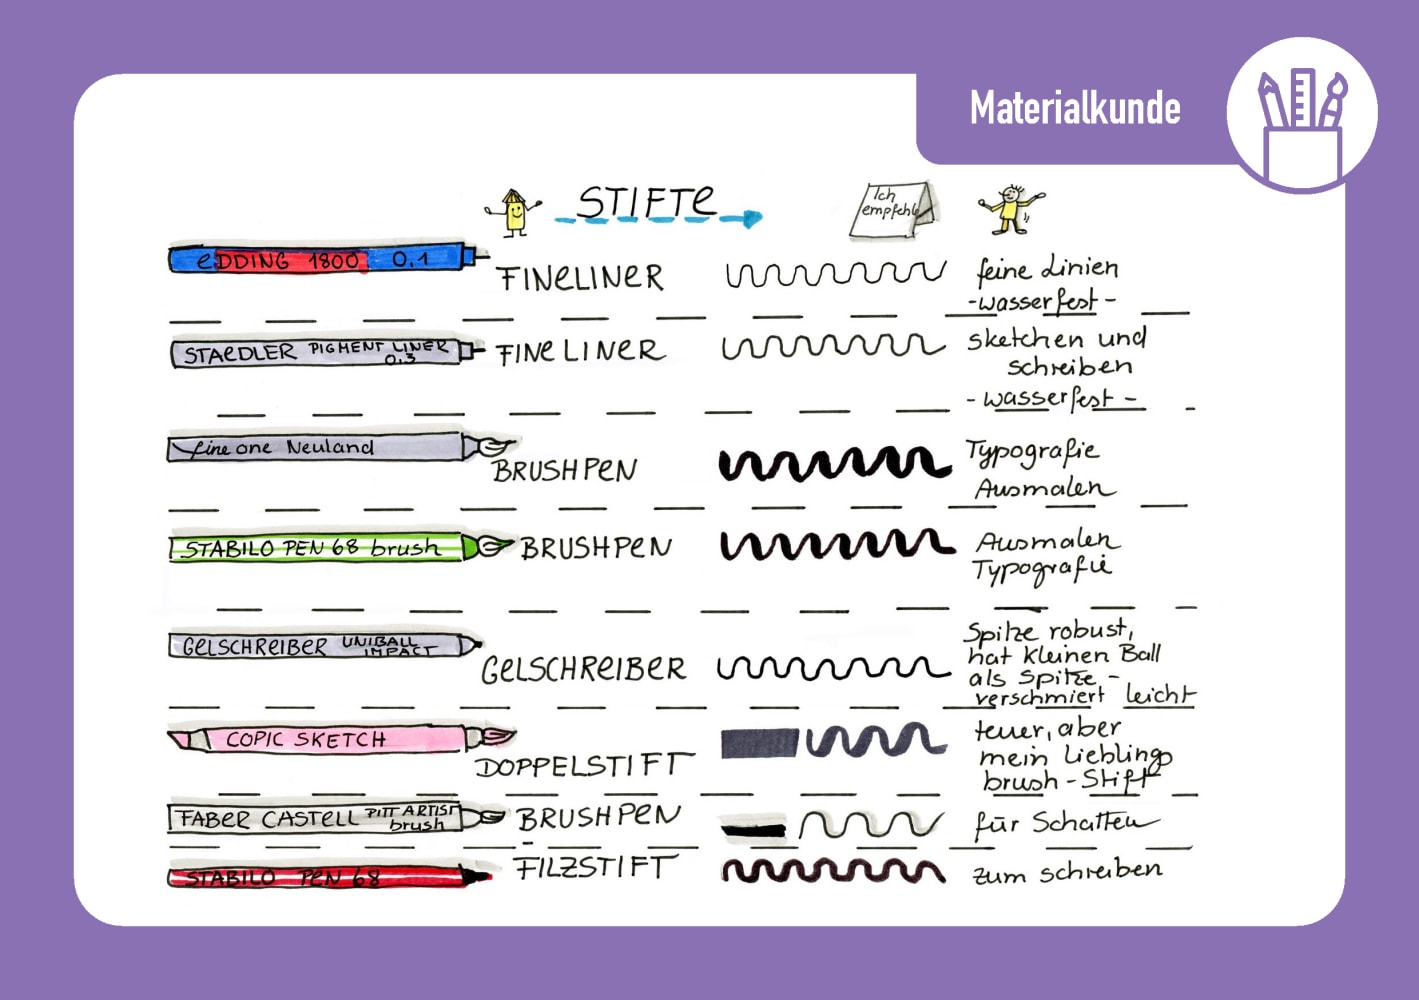 Materialkunde
STIFTE
Ich
empfehle
eDDING 1800 0.1
FINELINER
feine Linien
-wasserfest-
STAeDLER PIGMENT LINER
0.3
FINELINER
sketchen und
schreiben
- wasserfest -
fine one Neuland
BRUSHPEN
Typografie
Ausmalen
STABILO PEN 68 brush
BRUSHPEN
Ausmalen
Typografie
GELSCHREIBER UNIBALL
IMPACT
GELSCHREIBER
Spitze robust,
hat kleinen Ball
als Spitze -
verschmiert leicht
COPIC SKETCH
DOPPELSTIFT
teuer, aber
mein Lieblings
brush-Stift
FABER CASTELL PITT ARTIST
brush
BRUSHPEN
für Schatten
STABILO PEN 68
FILZSTIFT
zum schreiben